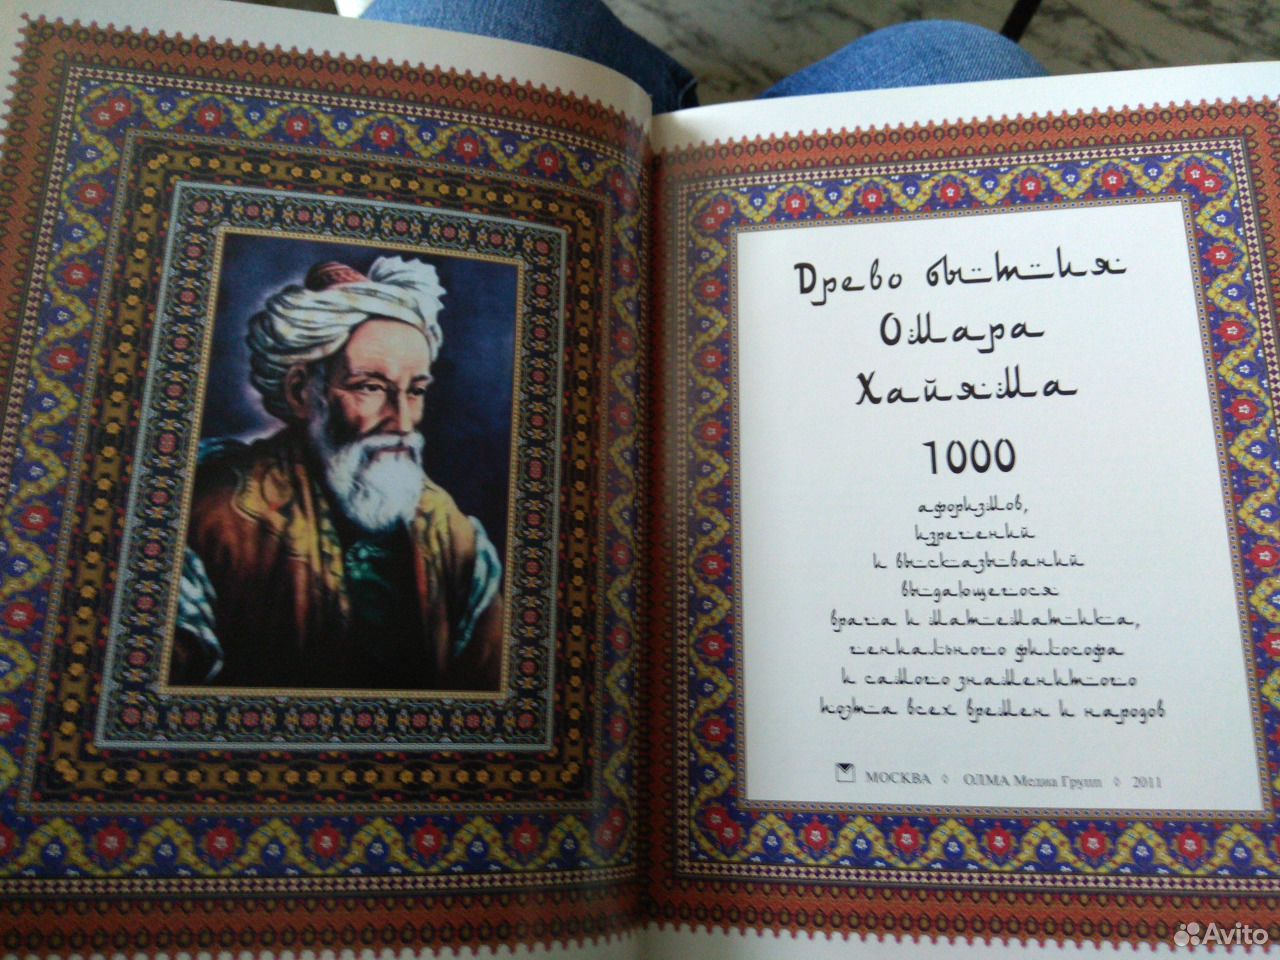 Древо бытия
Омара
Хайяма
1000
афоризмов,
изречений
и высказываний
выдающегося
врача и математика,
гениального философа
и самого знаменитого
поэта всех времен и народов
МОСКВА ◊ ОЛМА Медиа Групп ◊ 2011
Avito